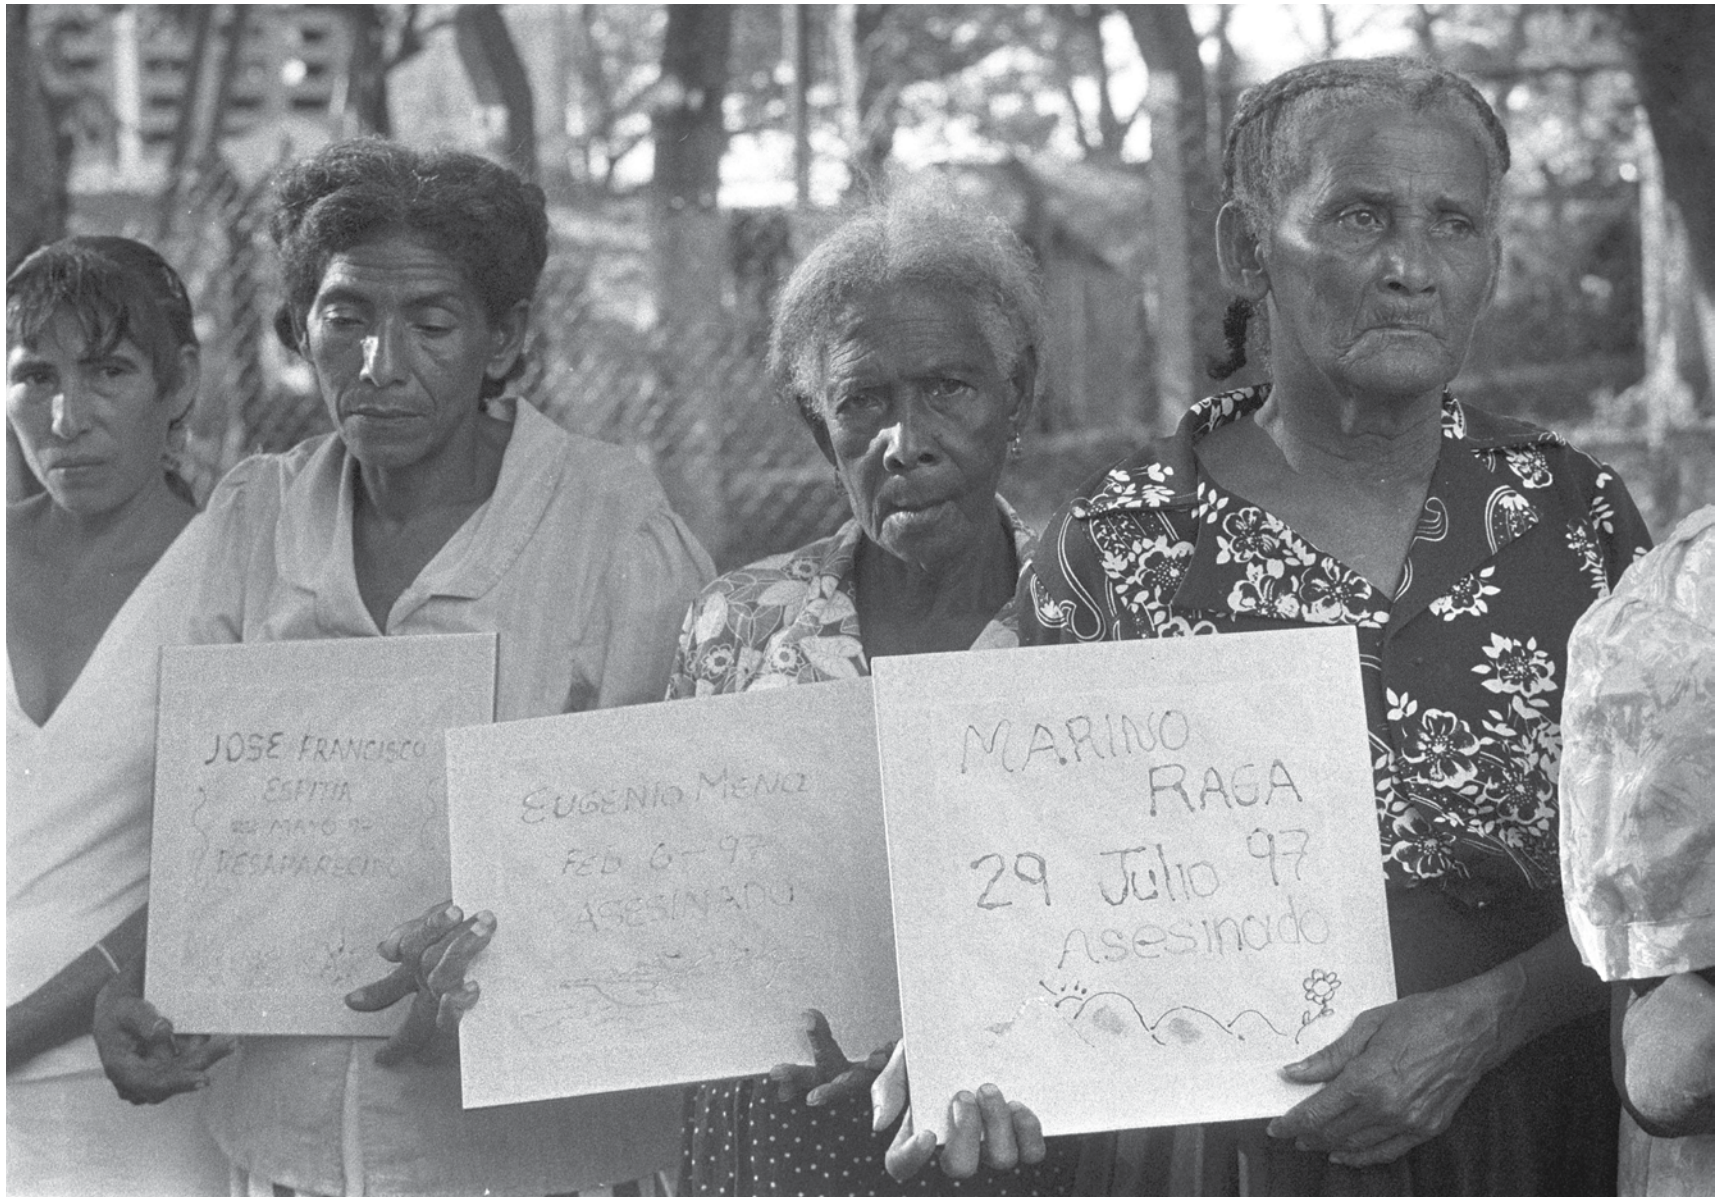 JOSE FRANCISCO
ESPITIA
22 MAYO 97
DESAPARECIDO
EUGENIO MENA
FEB 6-97
ASESINADO
MARINO
RAGA
29 Julio 97
Asesinado